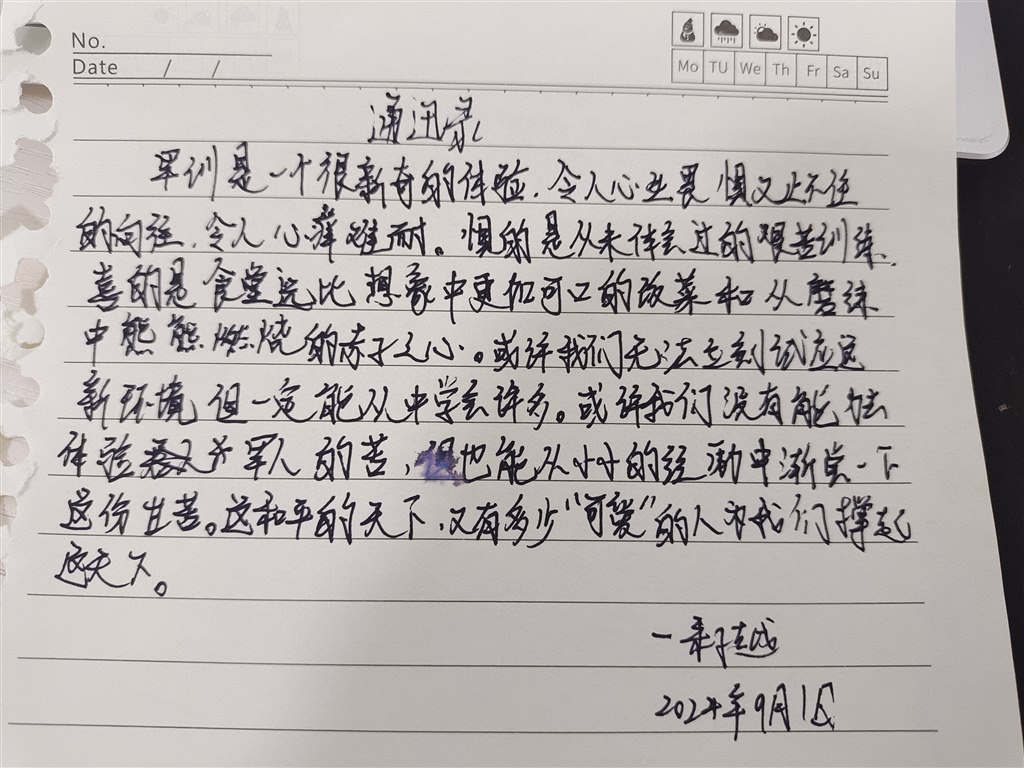 No.
Date / /
Mo TU We Th Fr Sa Su
通讯录
军训是一个很新奇的体验，令人心生畏惧又止不住
的向往，令人心痒难耐。惧的是从未体会过的艰苦训练，
喜的是食堂远比想象中更加可口的饭菜和从磨练
中熊熊燃烧的赤子之心。或许我们无法立刻试应这
新环境但一定能从中学会许多。或许我们没有能力去
体验军人的苦，但也能从小小的经动中渐尝一下
这份甘苦。这和平的天下，又有多少“可爱”的人为我们撑起
这天下。
2024年9月1日